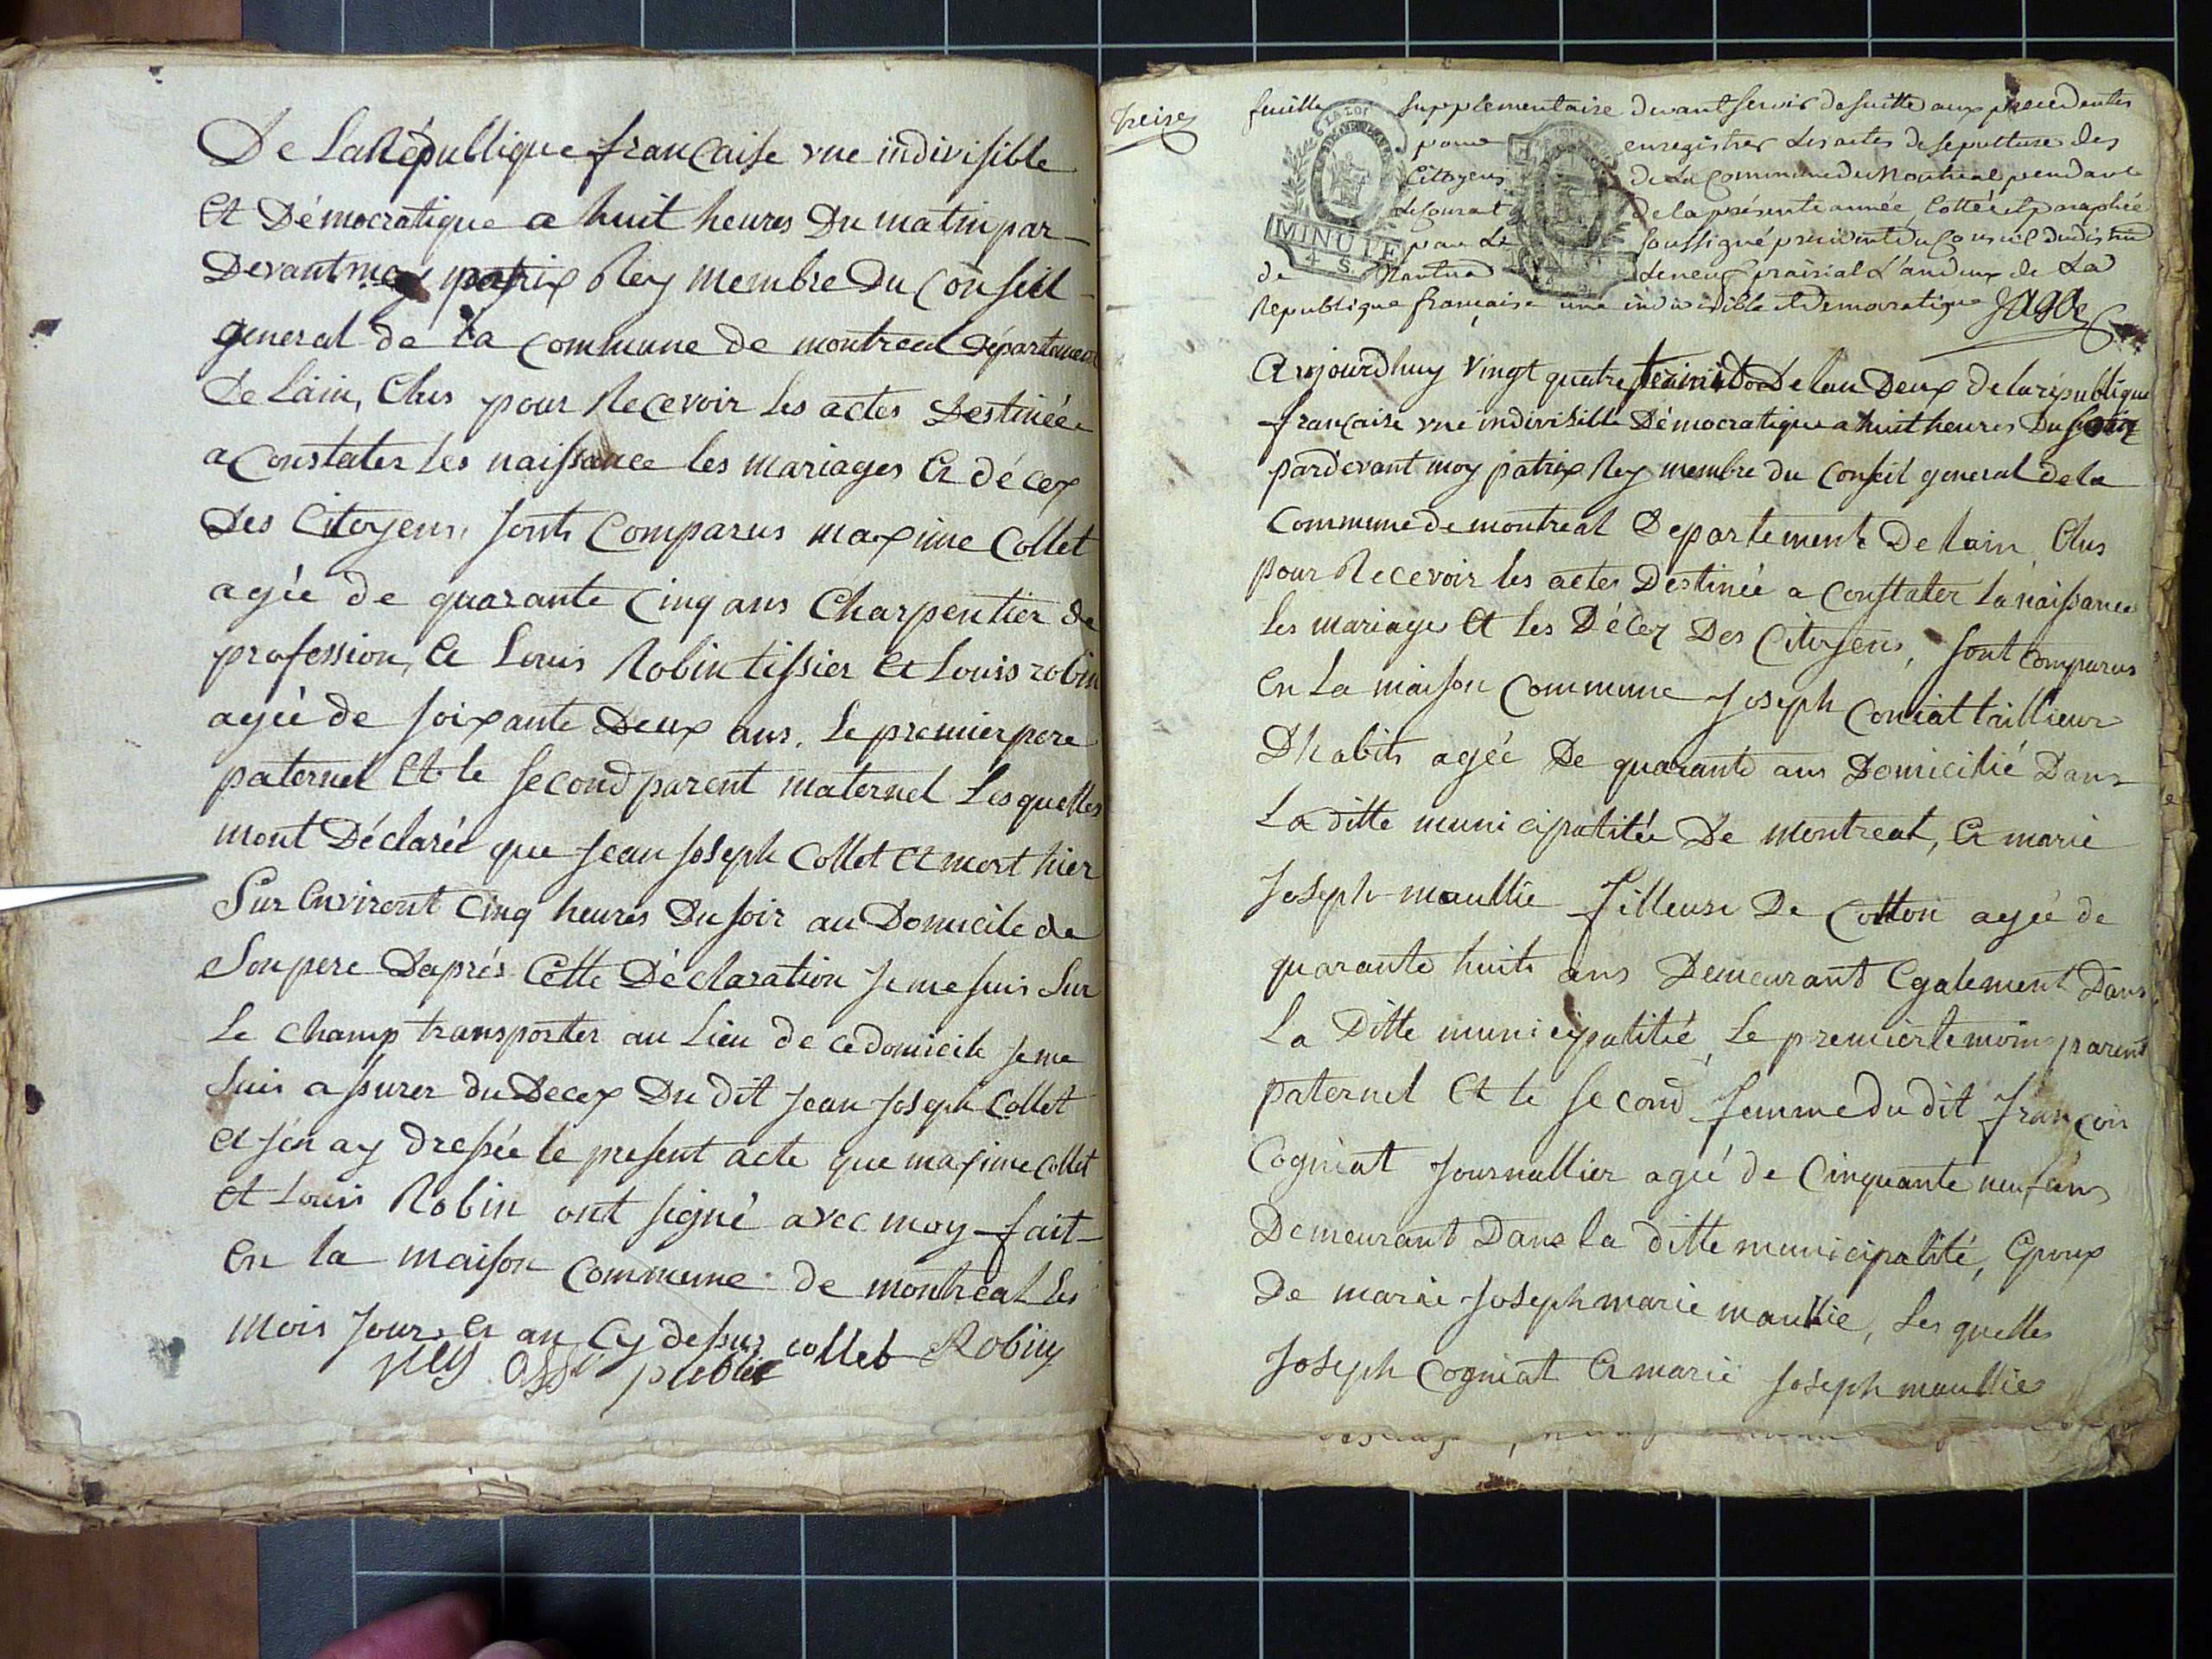 De La République française vne indivisible
Et Démocratique a huit heures Du matin par-
Devant moy patrix Rey membre Du Conseil
general de La Commune de montreal Département
De Lain, Elus pour Recevoir les actes Destinée
a Constater les naissance les mariages Et décex
Des Citoyens, sonts Comparus maxime Collet
agée de quarante Cinq ans Charpentier de
profession, Et Louis Robin tissier Et Louis robin
agée de soixante Deux ans. Le premier pere
paternel Et le second parent maternel Lesquelles
mont Déclarée que Jean Joseph Collet Et mort hier
Sur Environt Cinq heures Du soir au Domicile de
Son pere Daprés Cette Déclaration Je me suis Sur
Le Champ transporter au Lieu de ce domicile Je me
suis assurer du Decex Du dit Jean Joseph Collet
et Jén ay dressée le present acte que maxime Collet
et Louis Robin ont signé avec moy fait-
En la maison Commune de montreal Les
mois Jours Et an Cy dessus collet Robin
Rey Off public
Treize
feuille supplementaire devant servir de suitte aux precedentes
pour enregistrer les actes de sepulture des
Citoyens de La Commune de Montreal pendant
le courant de la présente année, Cottée et paraphée
par Le soussigné president du Conseil du district
de Nantua le neuf prairial L'an deux de La
Republique française une indivisible et Democratique
LA LOI
MINUTE
4 S.
Aujourdhuy Vingt quatre De lan Deux de la république
française vne indivisible Démocratique a huit heures Du
pardevant moy patrix Rey membre du Conseil general de la
Commune de montreal Departement De lain, Elus
pour Recevoir les actes Destinée a Constater la naissance
les mariage Et les Décex Des Citoyens, sont comparus
En La maison Commune Joseph Coniat taillieur
Dhabits agée De quarante ans Domicilié Dans
La ditte municipalitée De montreal, Et marie
Joseph maullie filleuse De Cotton agée de
quarante huits ans Demeurant Egalement Dans
La Ditte municipalitée, Le premier temoins parent
paternel Et le second femme du dit françois
Cogniat Journallier agé de Cinquante neuf ans
Demeurant Dans la ditte municipalité, Epoux
De marie Joseph marie maullie, Les quelles
Joseph Cogniat Et marie Joseph maullie